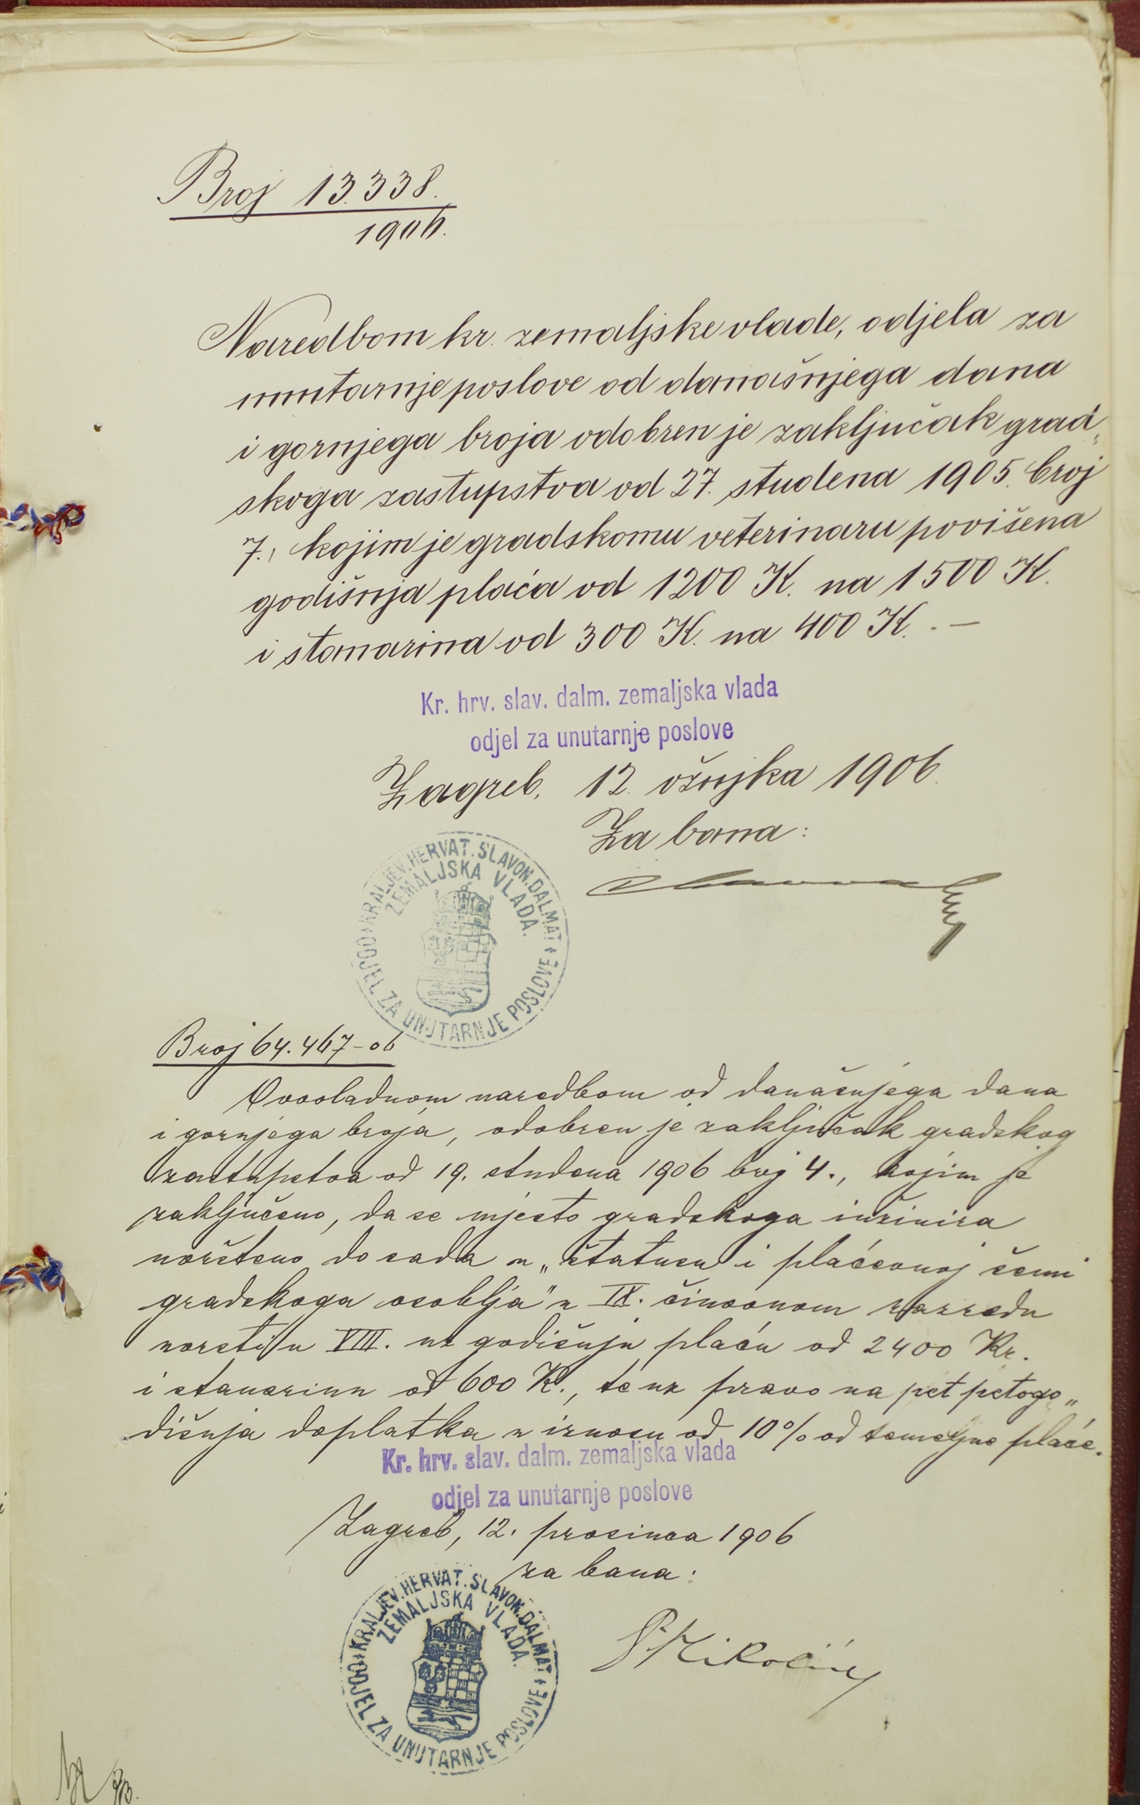 Broj 13.338.
1906.
Naredbom kr. zemaljske vlade, odjela za
unutarnje poslove od današnjega dana
i gornjega broja odobren je zaključak grad„
skoga zastupstva od 27. studena 1905. broj
7., kojim je gradskomu veterinaru povišena
godišnja plaća od 1200 K. na 1500 K.
i stanarina od 300 K. na 400 K. . —
Kr. hrv. slav. dalm. zemaljska vlada
odjel za unutarnje poslove
Zagreb, 12. ožujka 1906.
Za bana:
KRALJEV. HERVAT. SLAVON. DALMAT.
ZEMALJSKA VLADA.
ODJEL ZA UNUTARNJE POSLOVE
Broj 64.467-06
Ovovladnom naredbom od današnjega dana
i gornjega broja, odobren je zaključak gradskog
zastupstva od 19. studena 1906 broj 4., kojim je
zaključeno, da se mjesto gradskoga inžinira
uvršteno do sada u „štatusu i plaćevnoj šemi
gradskoga osoblja" u IX. činovnom razredu
uvrsti u VIII. uz godišnju plaću od 2400 Kr.
i stanarinu od 600 K., te uz pravo na pet petogo„
dišnja doplatka u iznosu od 10% od temeljne plaće.
Kr. hrv. slav. dalm. zemaljska vlada
odjel za unutarnje poslove
Zagreb, 12. prosinca 1906
za bana:
KRALJEV. HERVAT. SLAVON. DALMAT.
ZEMALJSKA VLADA.
ODJEL ZA UNUTARNJE POSLOVE